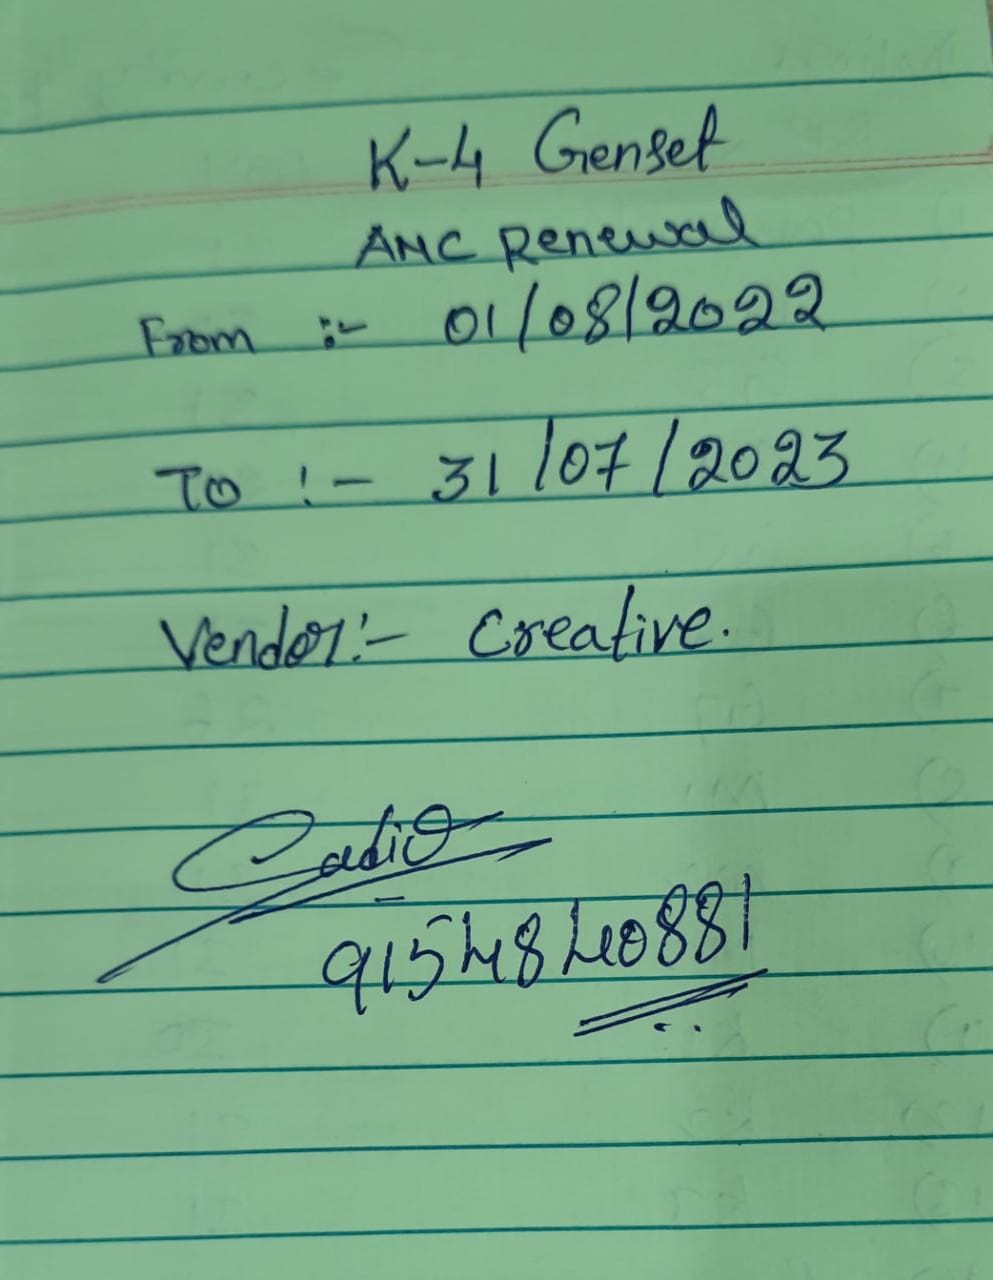 K-4 Genset
AMC Renewal
From :- 01/08/2022
To :- 31/07/2023
Vendor:- Creative.
9154840881